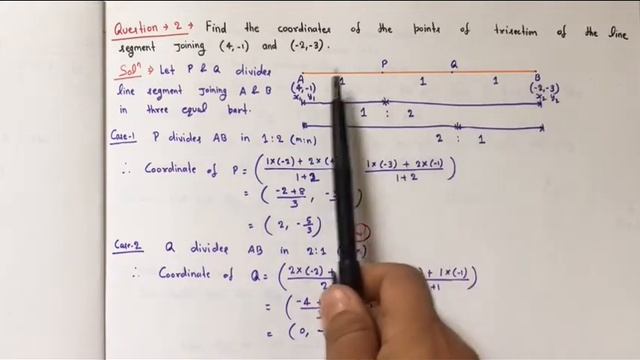 Question → 2 → Find the coordinates of the points of trisection of the line
segment joining (4,-1) and (-2,-3).
Solⁿ → Let P & Q divides
line segment joining A & B
in three equal part.
P Q
A 1 1 1 B
(4,-1) (-2,-3)
x₁ y₁ x₂ y₂
1 : 2
2 : 1
Case-1 P divides AB in 1:2 (m:n)
∴ Coordinate of P = ( 1×(-2) + 2×( / 1+2 1×(-3) + 2×(-1) / 1+2 )
= ( -2+8 / 3 , )
= ( 2, -5/3 )
Case-2 Q divides AB in 2:1
∴ Coordinate of Q = ( 2×(-2) + 1×(-1) / +1 )
= ( -4
= ( 0, -